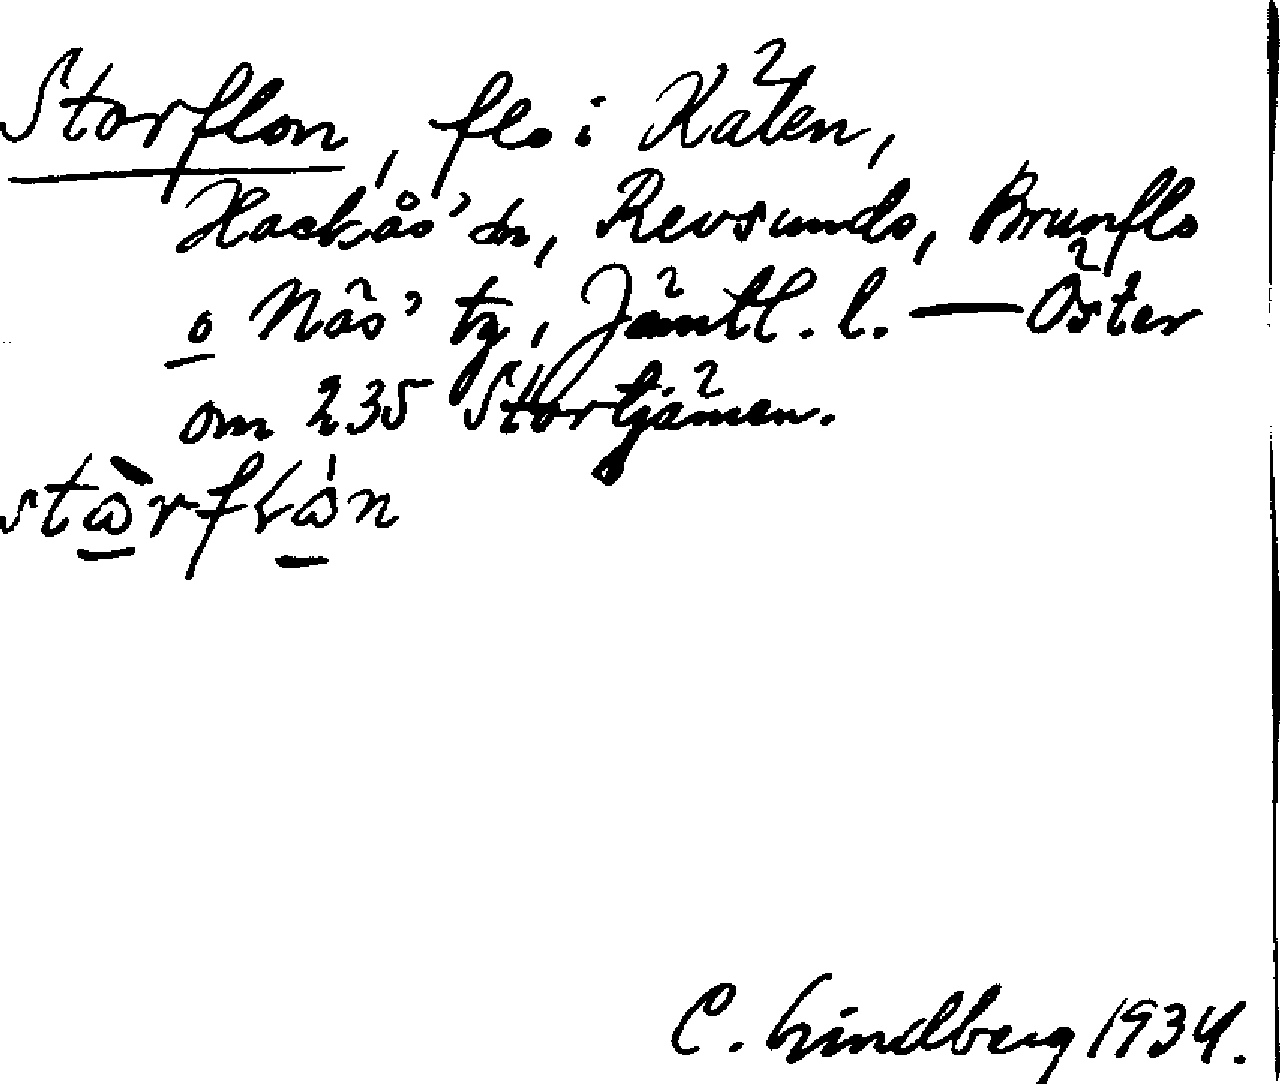 Storflon, flo i Käten,
Hackås' sn, Revsunds, Brunflo
o Näs' tg, Jämtl. l. — Öster
om 235 Stortjärnen.
C. Lindberg 1934.